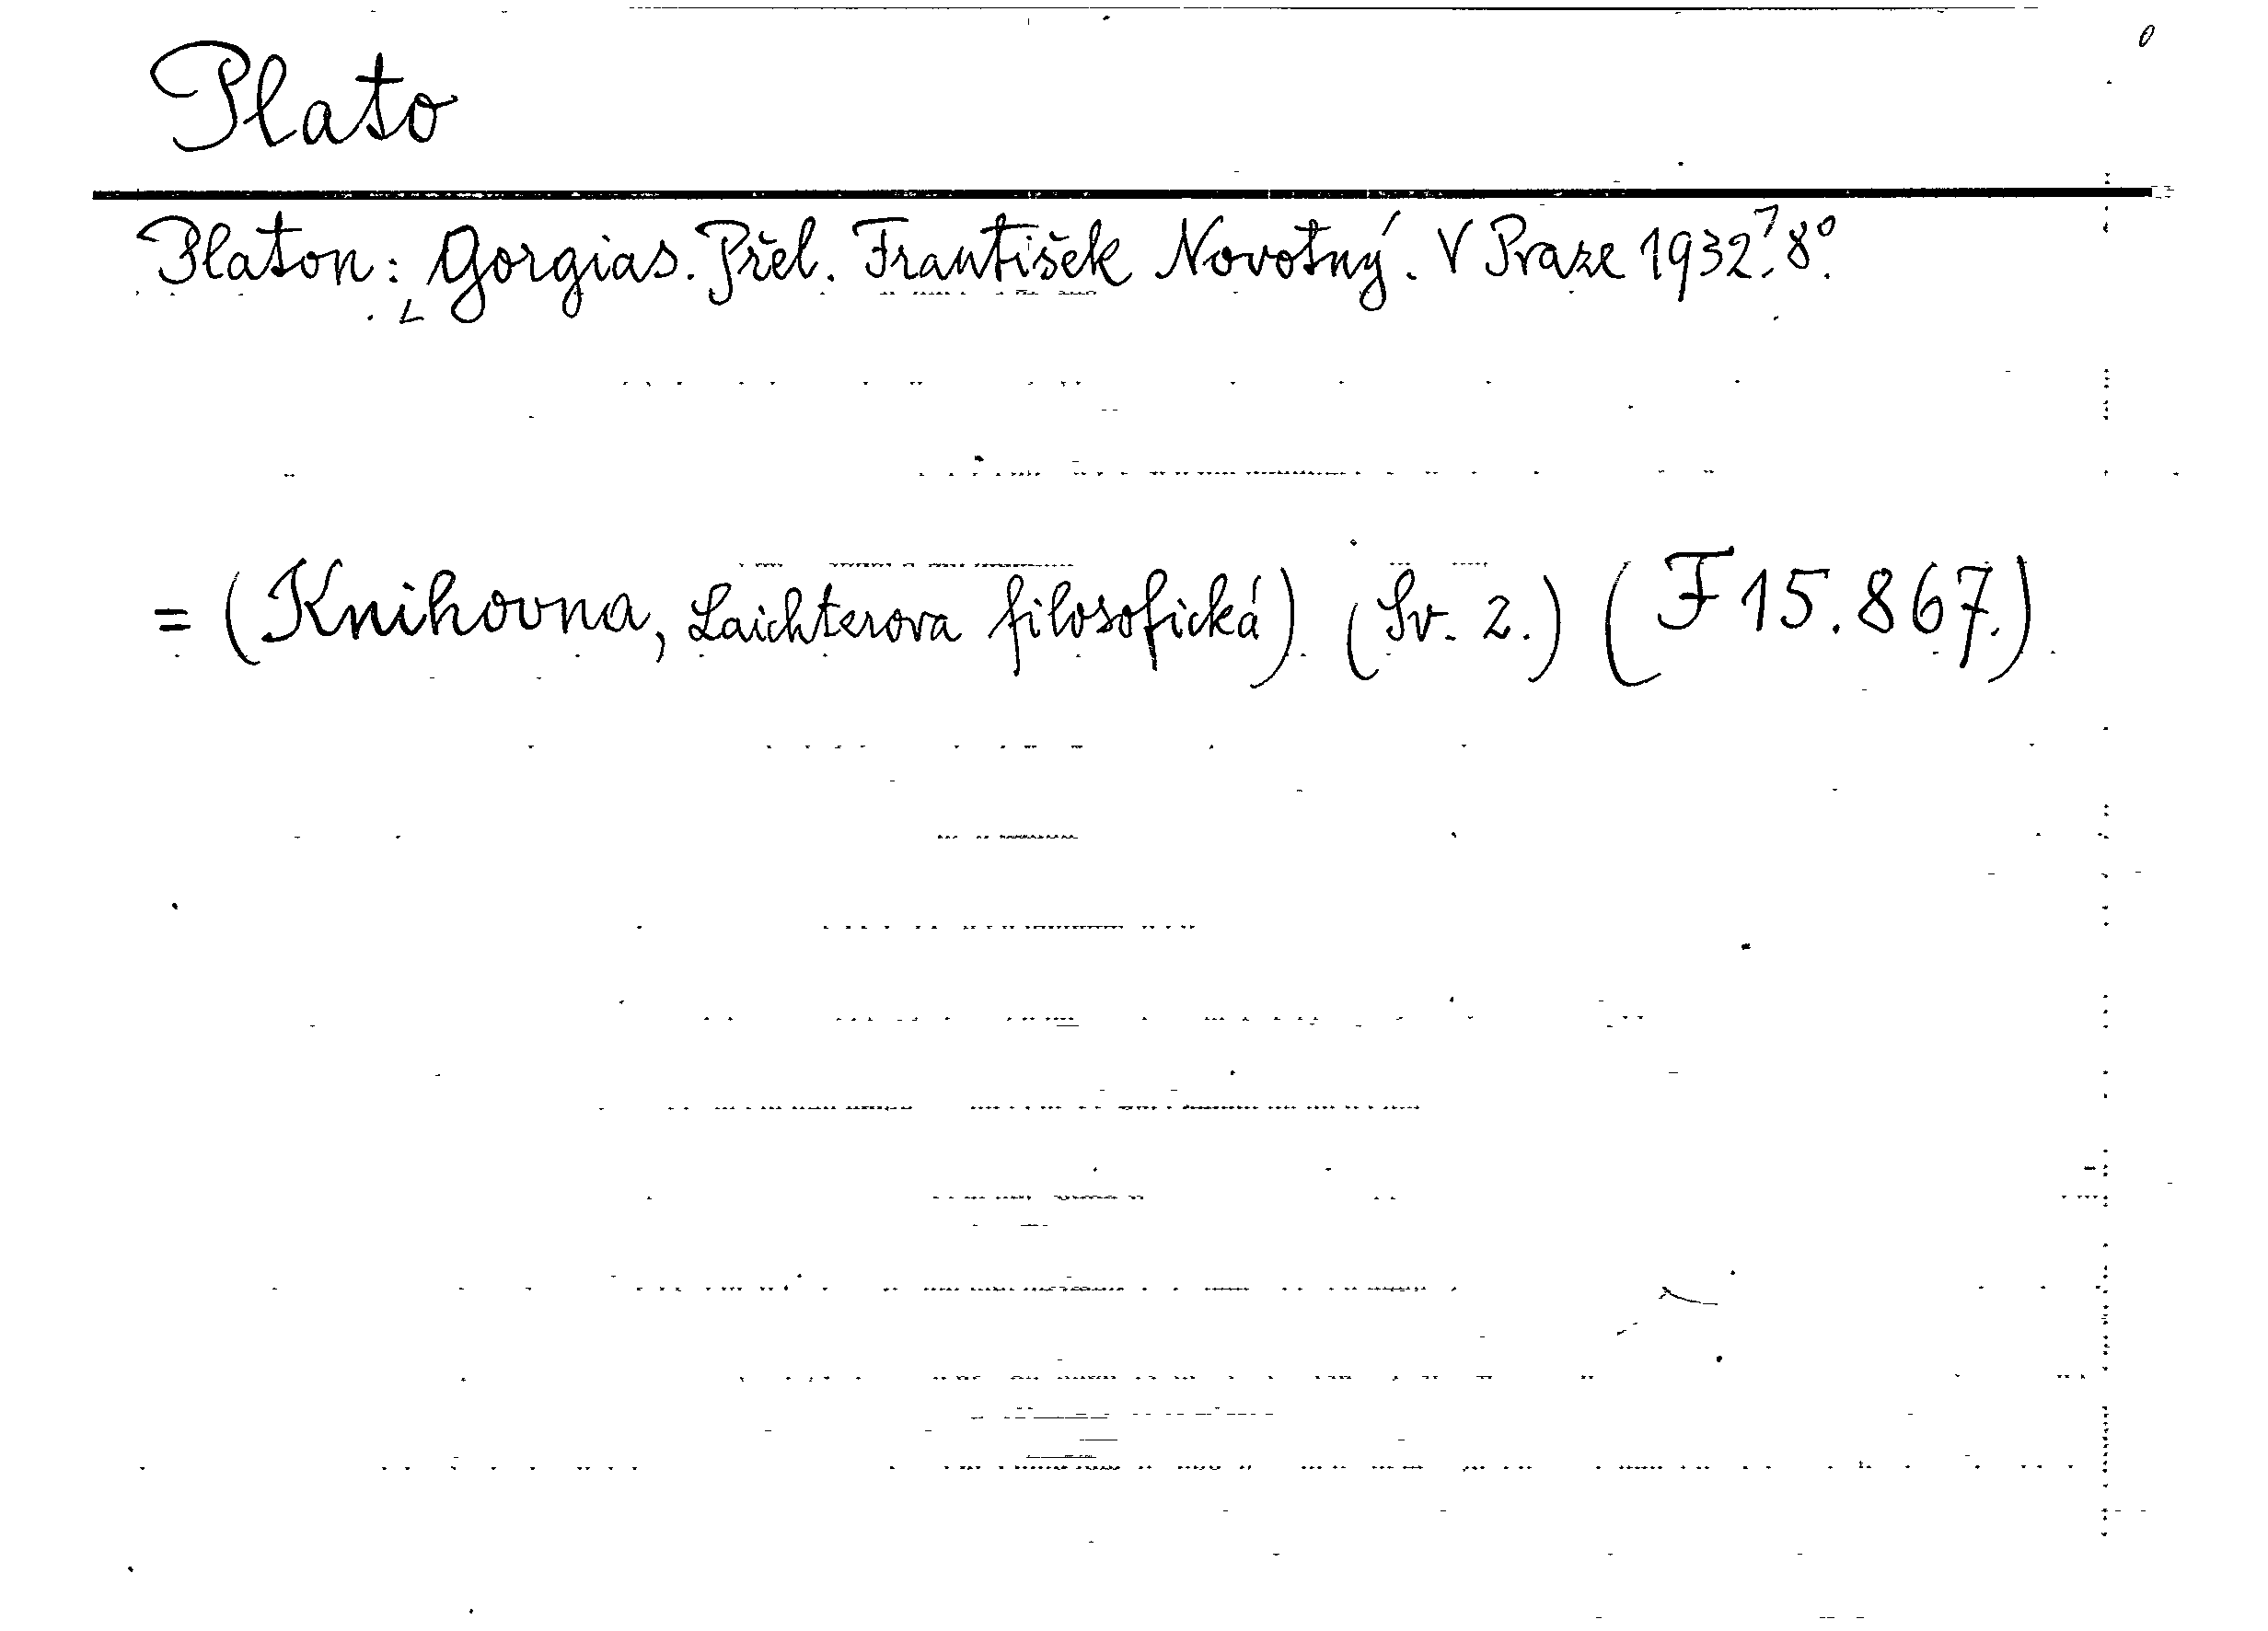 Plato
Platon: Gorgias. Přel. František Novotný. V Praze 1932. 8°.
= (Knihovna, Laichterova filosofická) (Sv. 2.) (F 15.867.)